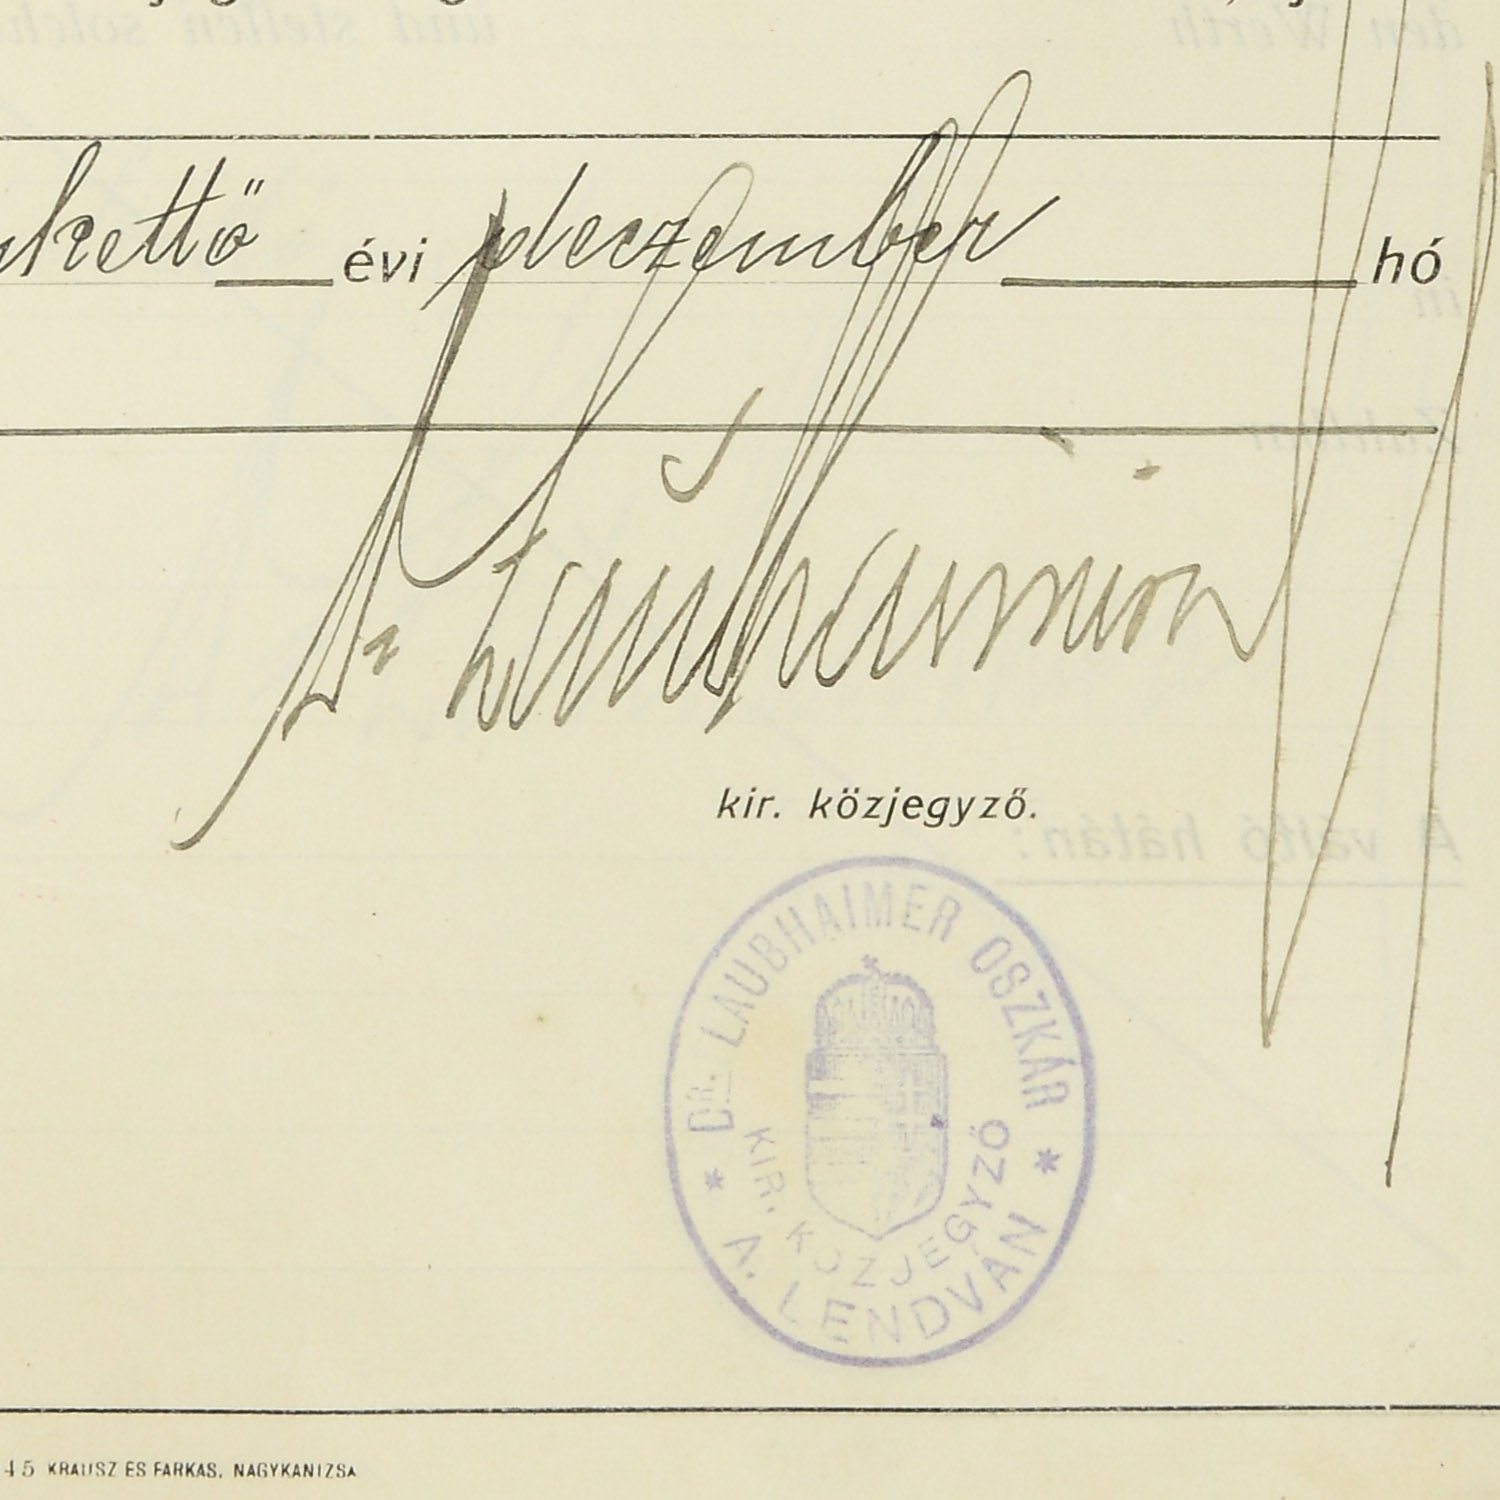 den Werth und stellen solche
kettő évi deczember hó
in
Dr Laubhaimer
kir. közjegyző.
A váltó hátán:
Dr. LAUBHAIMER OSZKÁR
KIR. KÖZJEGYZŐ
* A. LENDVÁN *
45 KRAUSZ ÉS FARKAS, NAGYKANIZSA